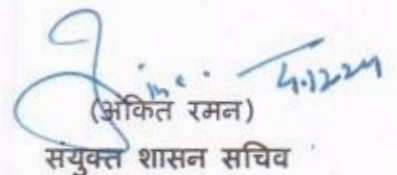 4.12.24
(अंकित रमन)
संयुक्त शासन सचिव